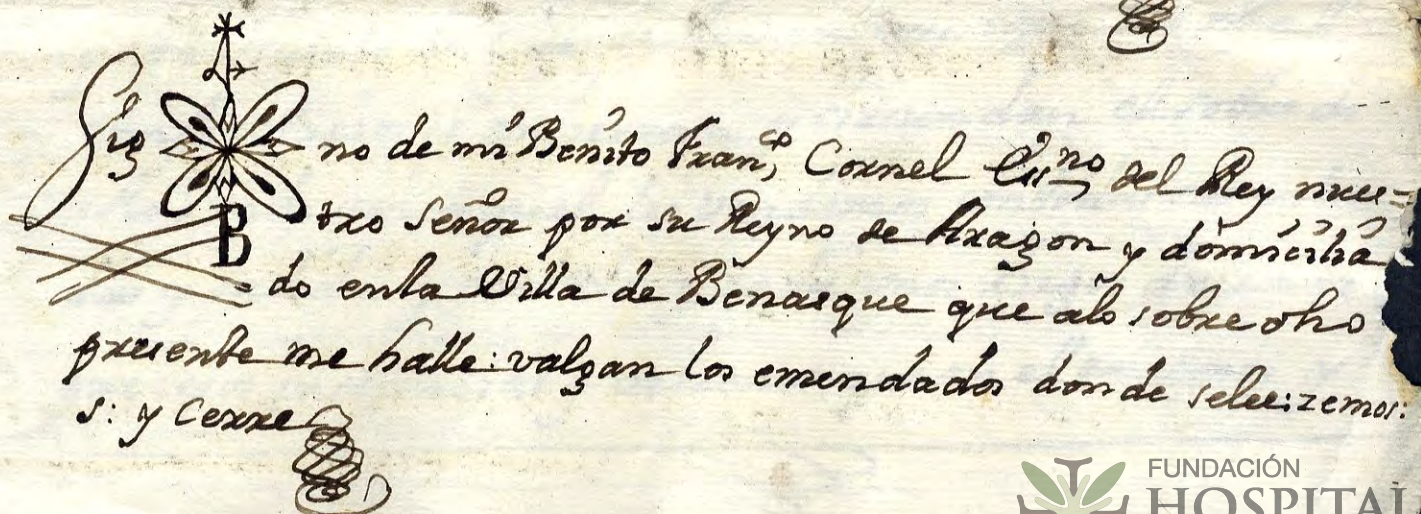 Sig no de mi Benito Franco, Cornel Essno del Rey nues=
tro Señor por su Reyno de Aragon y domicilia
= do enla Villa de Benasque que alo sobre dho
presente me halle: valgan los emendados donde selee: zemos:
s: y Cerre
B
FUNDACIÓN
HOSPITAL